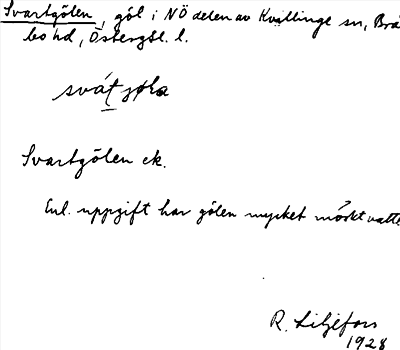 Svartgölen, göl i NÖ delen av Kvillinge sn, Brå
bo hd, Östergötl. l.
Svartgölen ek.
Enl. uppgift har gölen mycket mörkt vatte
R. Liljefors
1928